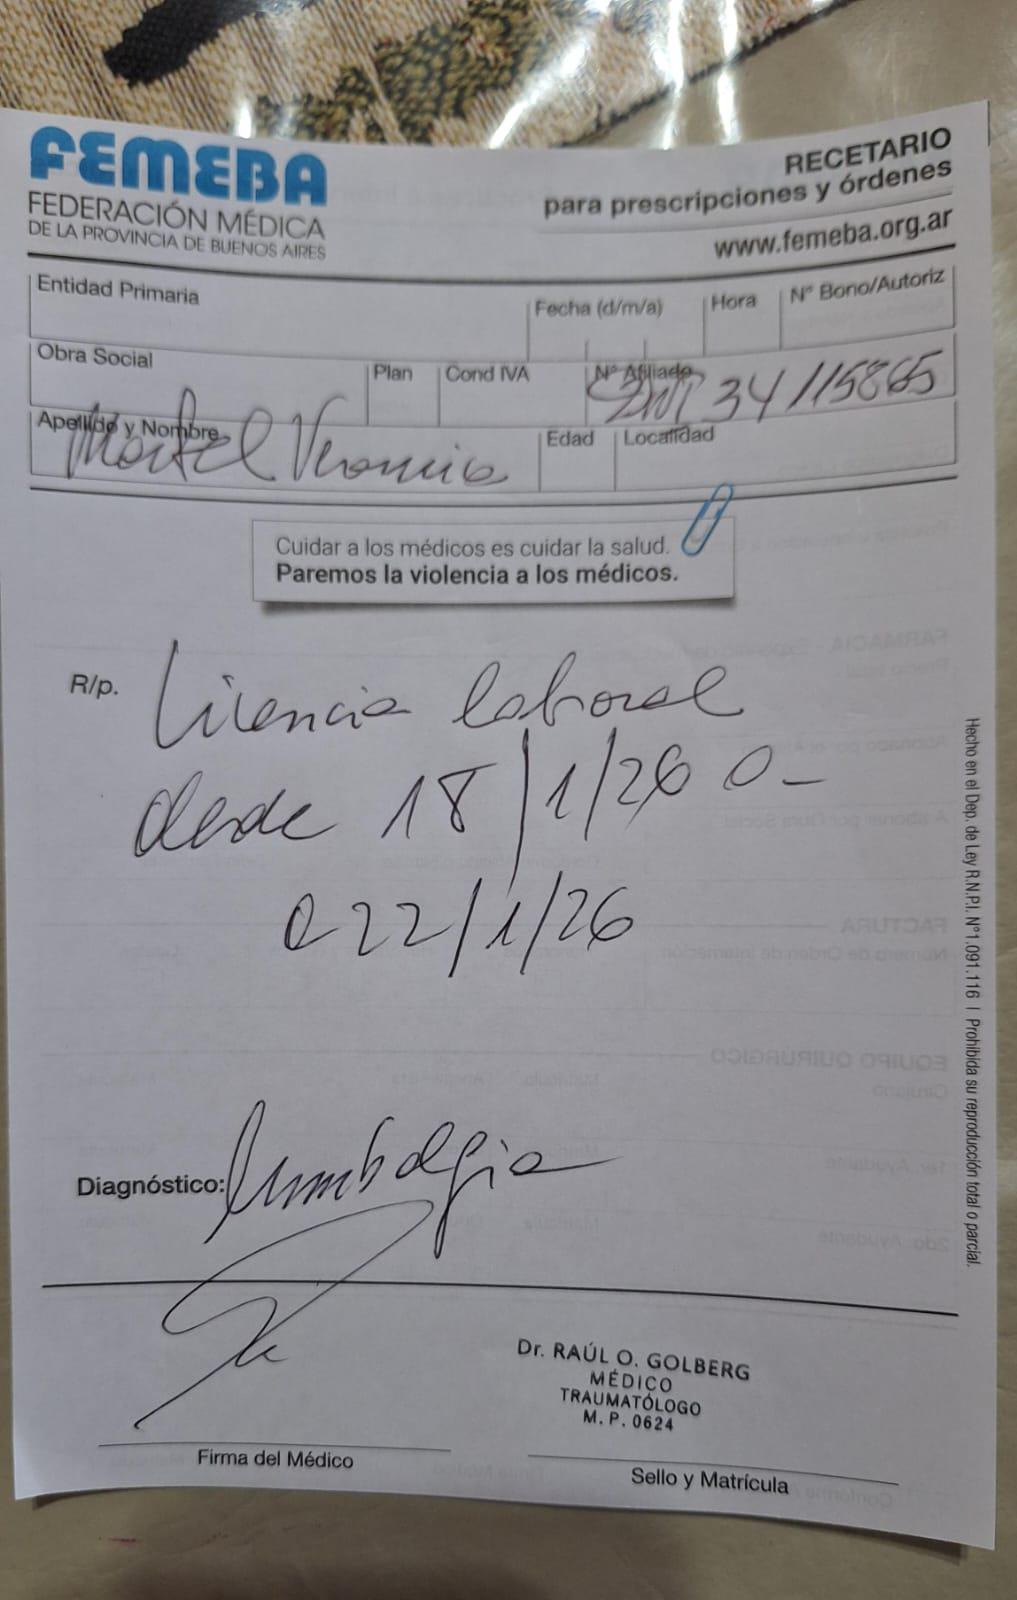 FEMEBA
FEDERACIÓN MÉDICA
DE LA PROVINCIA DE BUENOS AIRES
RECETARIO
para prescripciones y órdenes
www.femeba.org.ar
Entidad Primaria
Fecha (d/m/a)
Hora
N° Bono/Autoriz
Obra Social
Plan
Cond IVA
N° Afiliado
DNI 34115865
Apellido y Nombre
Martel Veronica
Edad
Localidad
Cuidar a los médicos es cuidar la salud.
Paremos la violencia a los médicos.
R/p.
Licencia laboral
desde 18/1/26 a -
a 22/1/26
Diagnóstico: lumbalgia
Dr. RAÚL O. GOLBERG
MÉDICO
TRAUMATÓLOGO
M. P. 0624
Firma del Médico
Sello y Matrícula
Hecho en el Dep. de Ley R.N.P.I. N°1.091.116 | Prohibida su reproducción total o parcial.